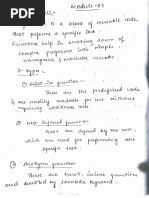 Module-03
is a block of reusable code
that performs a specific task.
Functions help in breaking down of
complex programs into simple,
manageable & modular chunks
3- types
① built-in function -
These are the predefined code
are readily available for use without
requiring additional code.
② User defined function
These are defined by the user,
which are used for performing any
specific task.
③ Anonymous function
These are small, inline function
and denoted by lambda keyword.